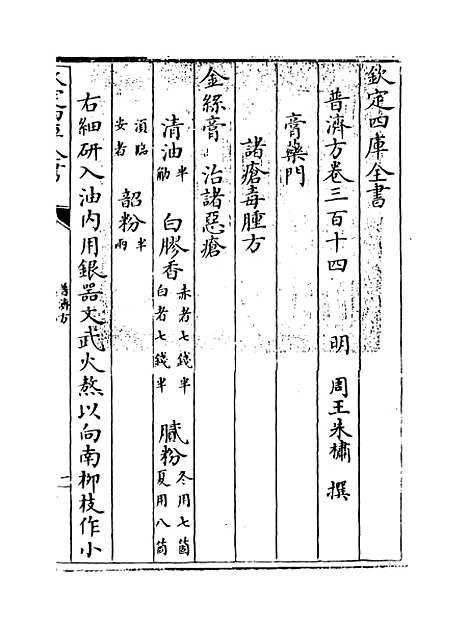 欽定四庫全書
普濟方卷三百十四
明 周王朱橚 撰
膏藥門
諸瘡毒腫方
金絲膏 治諸惡瘡
清油半觔 白膠香赤者七錢半白者七錢半 膩粉冬用七箇夏用八箇
須臨安者 韶粉半兩
右細研入油内用銀器文武火熬以向南柳枝作小
普濟方